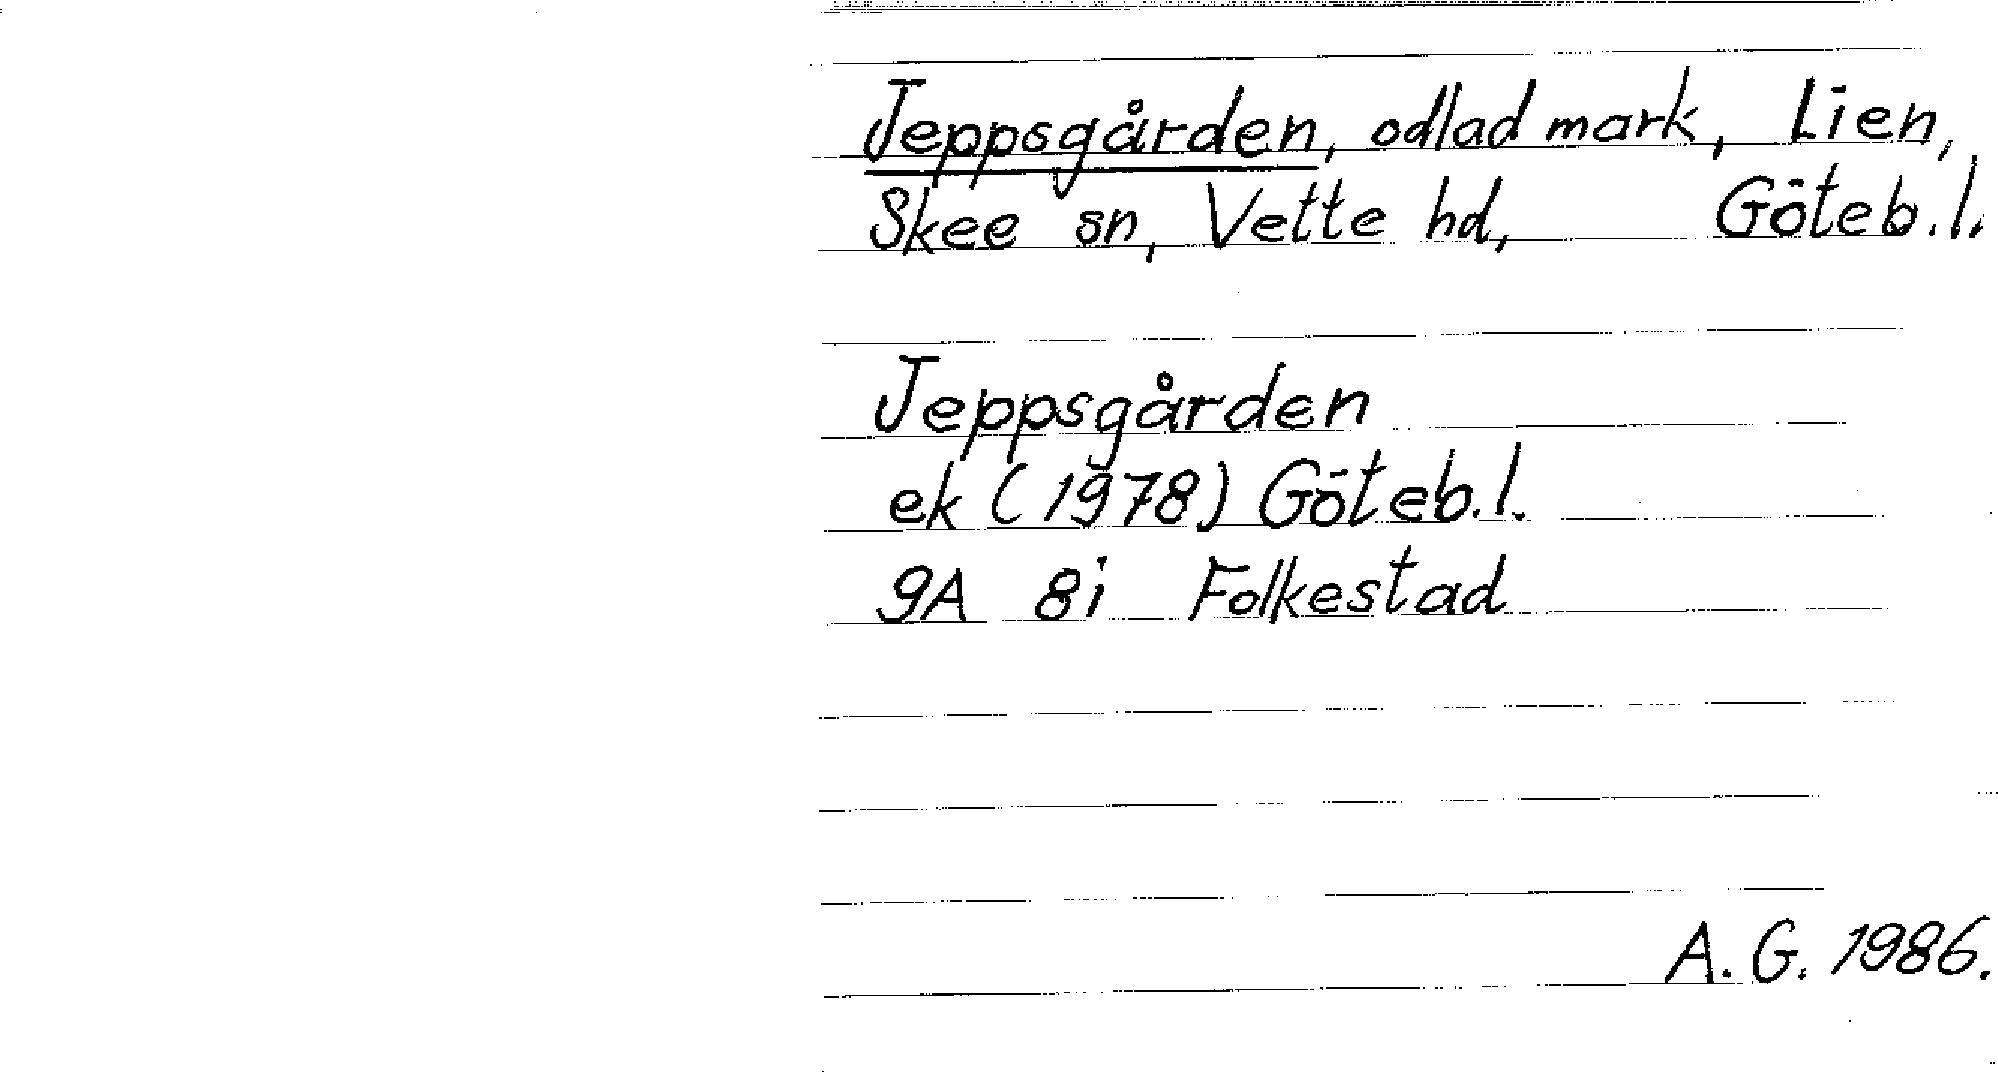 Jeppsgården, odlad mark, Lien,
Skee sn, Vette hd, Göteb. l.
Jeppsgården
ek (1978) Göteb. l.
9A 8i Folkestad
A. G. 1986.